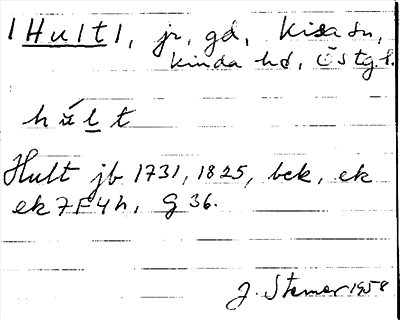 /Hult/, jr, gd, Kisa sn,
Kinda hd, Östg.l.
húlt
Hult jb 1731, 1825, bek, ek
ek 7F4h, G 36.
J. Stemar 1958